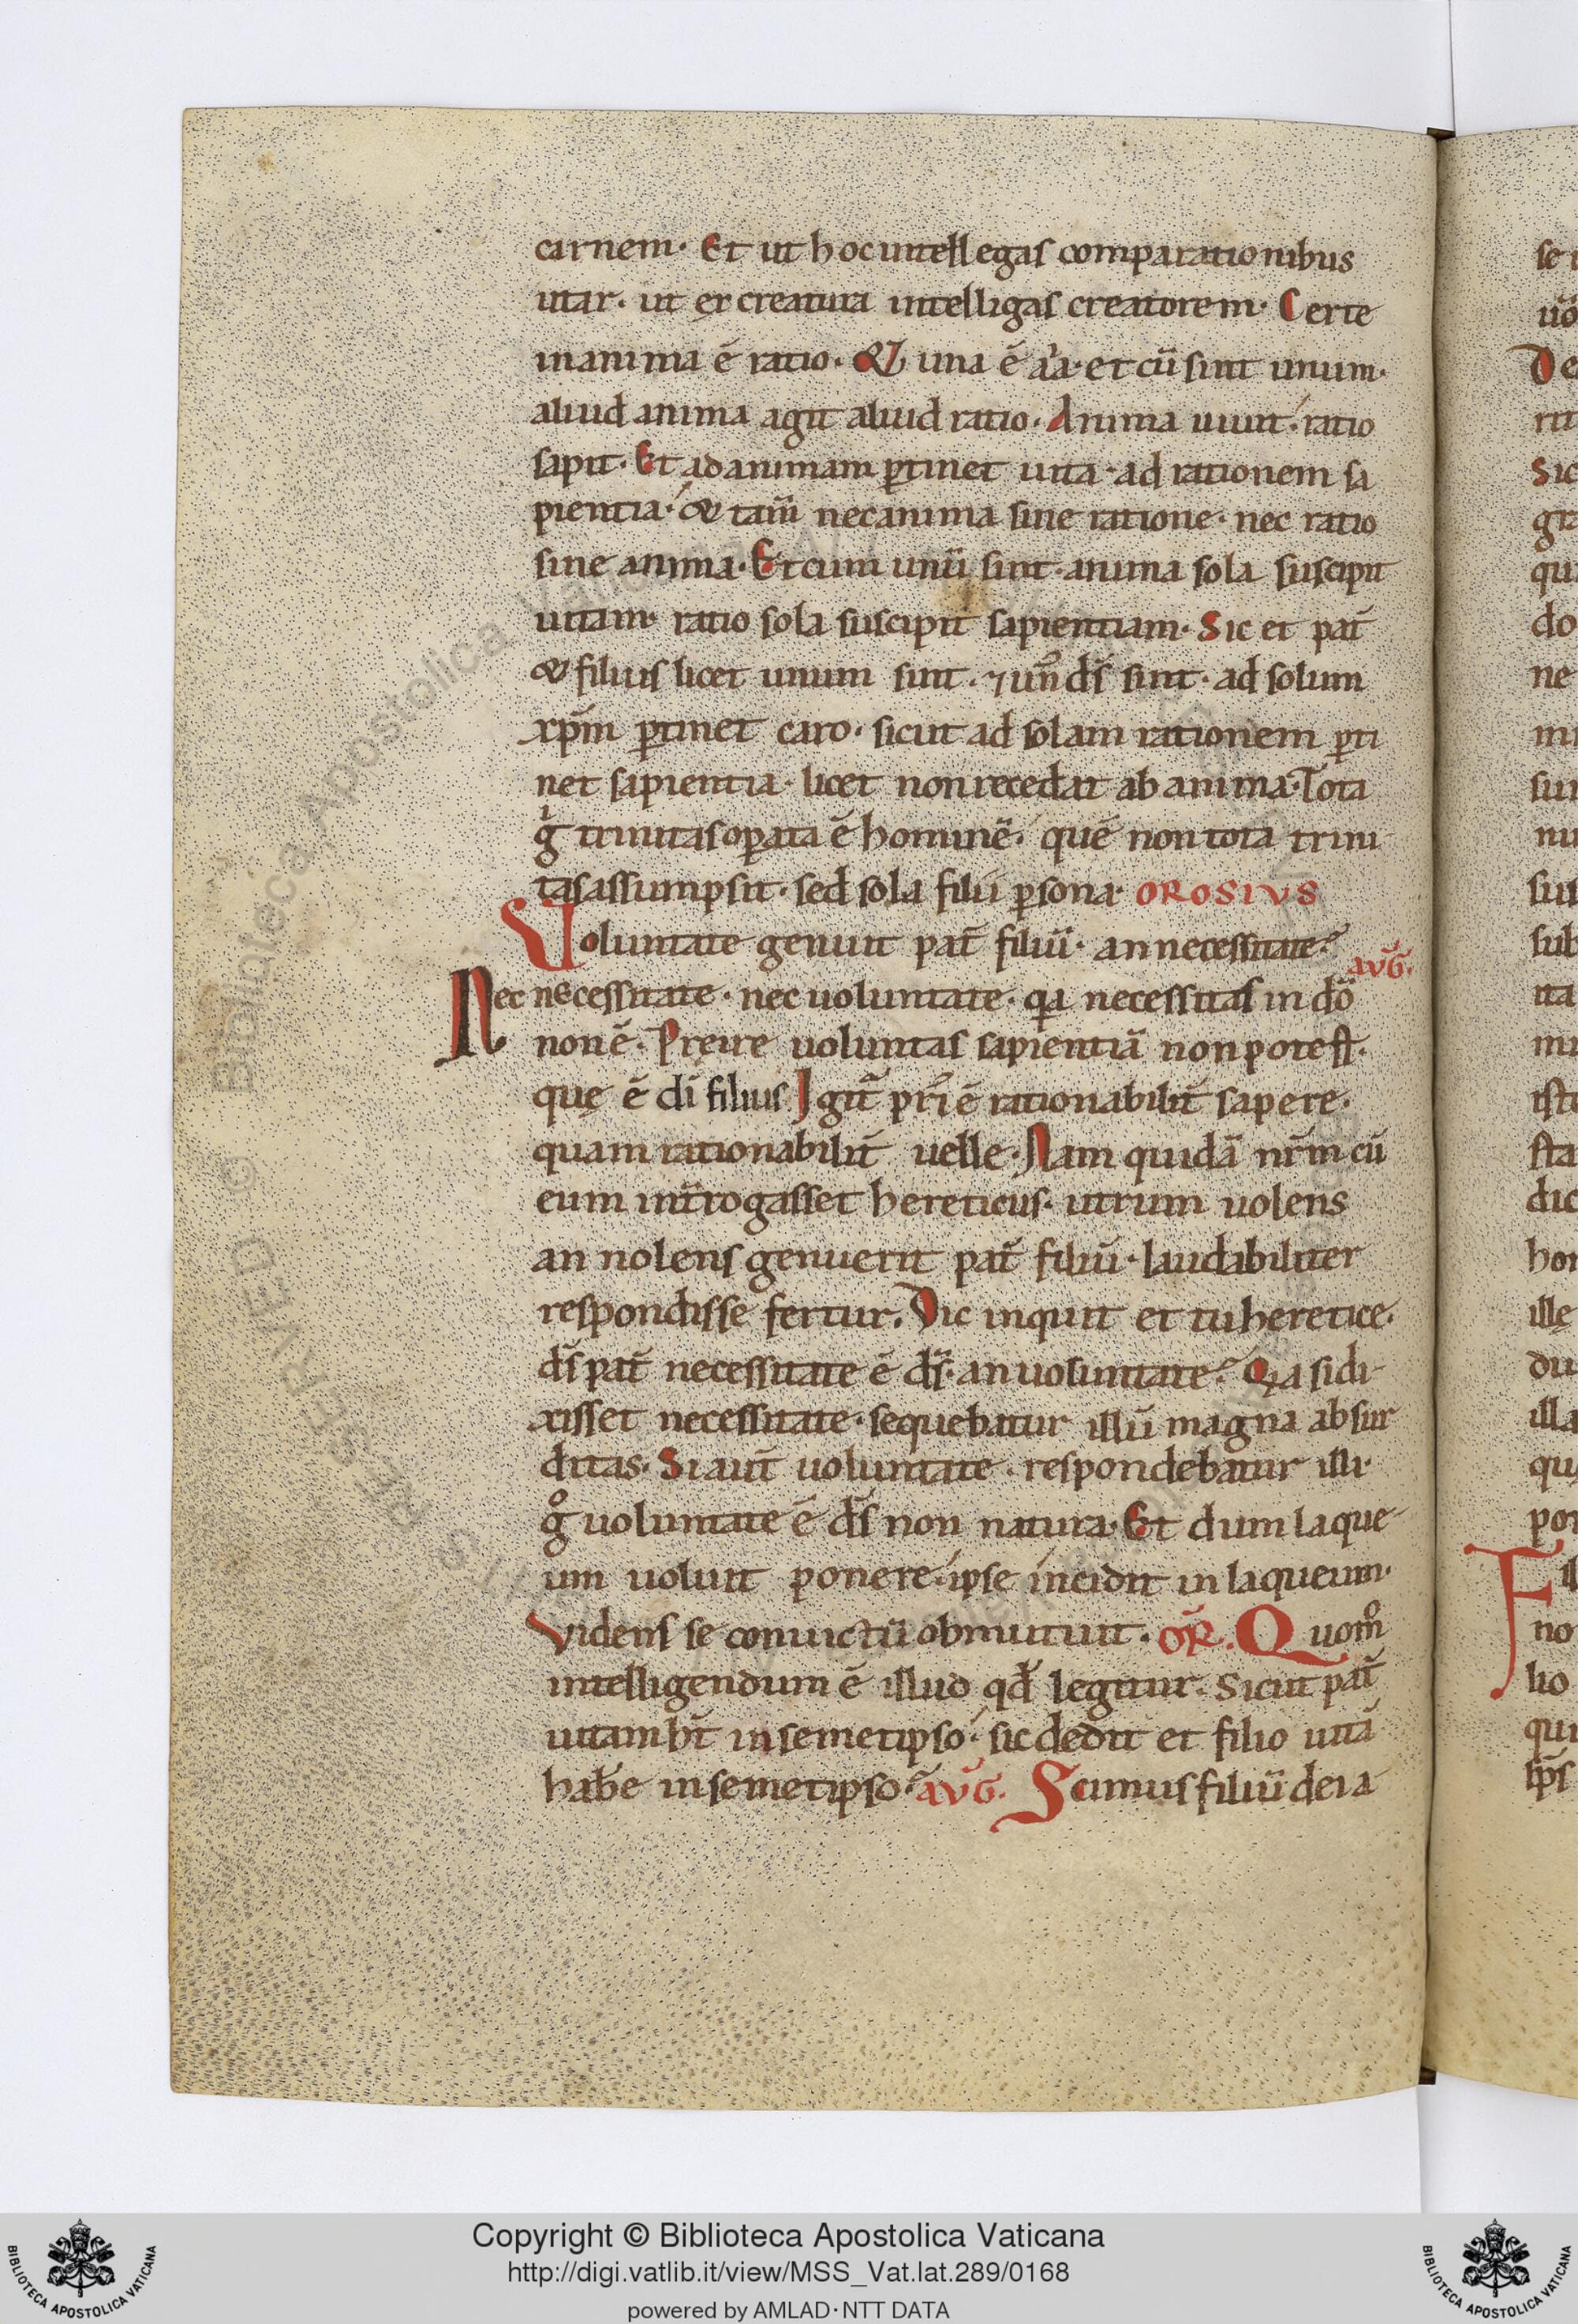 carnem· Et ut hoc intellegas comparationibus
utar· ut ex creatura intelligas creatorem· Certe
in anima ē ratio· & una ē aīa· et cū sint unum·
aliud anima agit aliud ratio· Anima uiuit· ratio
sapit· Et ad animam ꝑtinet uita· ad rationem sa
pientia· & tam̄ nec anima sine ratione· nec ratio
sine anima· Et cum unū sint· anima sola suscipit
uitam· ratio sola suscipit sapientiam· Sic et pat̄
& filius licet unum sint· ⁊ un᷒ ds̄ sint· ad solum
xp̄m ꝑtinet caro· sicut ad solam rationem ꝑti
net sapientia· licet non recedat ab anima· Tota
gͥ trinitas oꝑata ē hominē· quē non tota trini
tas assumpsit· sed sola filii ꝑsona· OROSIVS
Voluntate genuit pat̄ filiū· an necessitate?
AVḠ·
Nec necessitate· nec uoluntate· qꝛa necessitas in dō
non ē· Preire uoluntas sapientiā non potest·
quę ē dī filius Igit̄ pri᷒ ē rationabilit̄ sapere·
quam rationabilit̄ uelle· Nam quidā nr̄m cū
eum int̄rogasset hereticus· utrum uolens
an nolens genuerit pat̄ filiū· laudabiliter
respondisse fertur· Dic inquit et tu heretice·
ds̄ pat̄ necessitate ē ds̄· an uoluntate? Qꝛa si di
xisset necessitate· sequebatur illū magna absur
ditas· Si aut̄ uoluntate· respondebatur illi·
gͦ uoluntate ē ds̄ non natura· Et dum laque
um uoluit ponere· ipse incidit in laqueum·
Videns se conuictū obmutuit· OR̄. Quom̊
intelligendum ē illud qd̄ legitur· Sicut pat̄
uitam ht̄ in semetipso· sic dedit et filio uitā
habe̅ in semetipso? AVḠ. Scimus filiū dei a
Copyright © Biblioteca Apostolica Vaticana
http://digi.vatlib.it/view/MSS_Vat.lat.289/0168
powered by AMLAD·NTT DATA
BIBLIOTECA APOSTOLICA VATICANA
BIBLIOTECA APOSTOLICA VATICANA